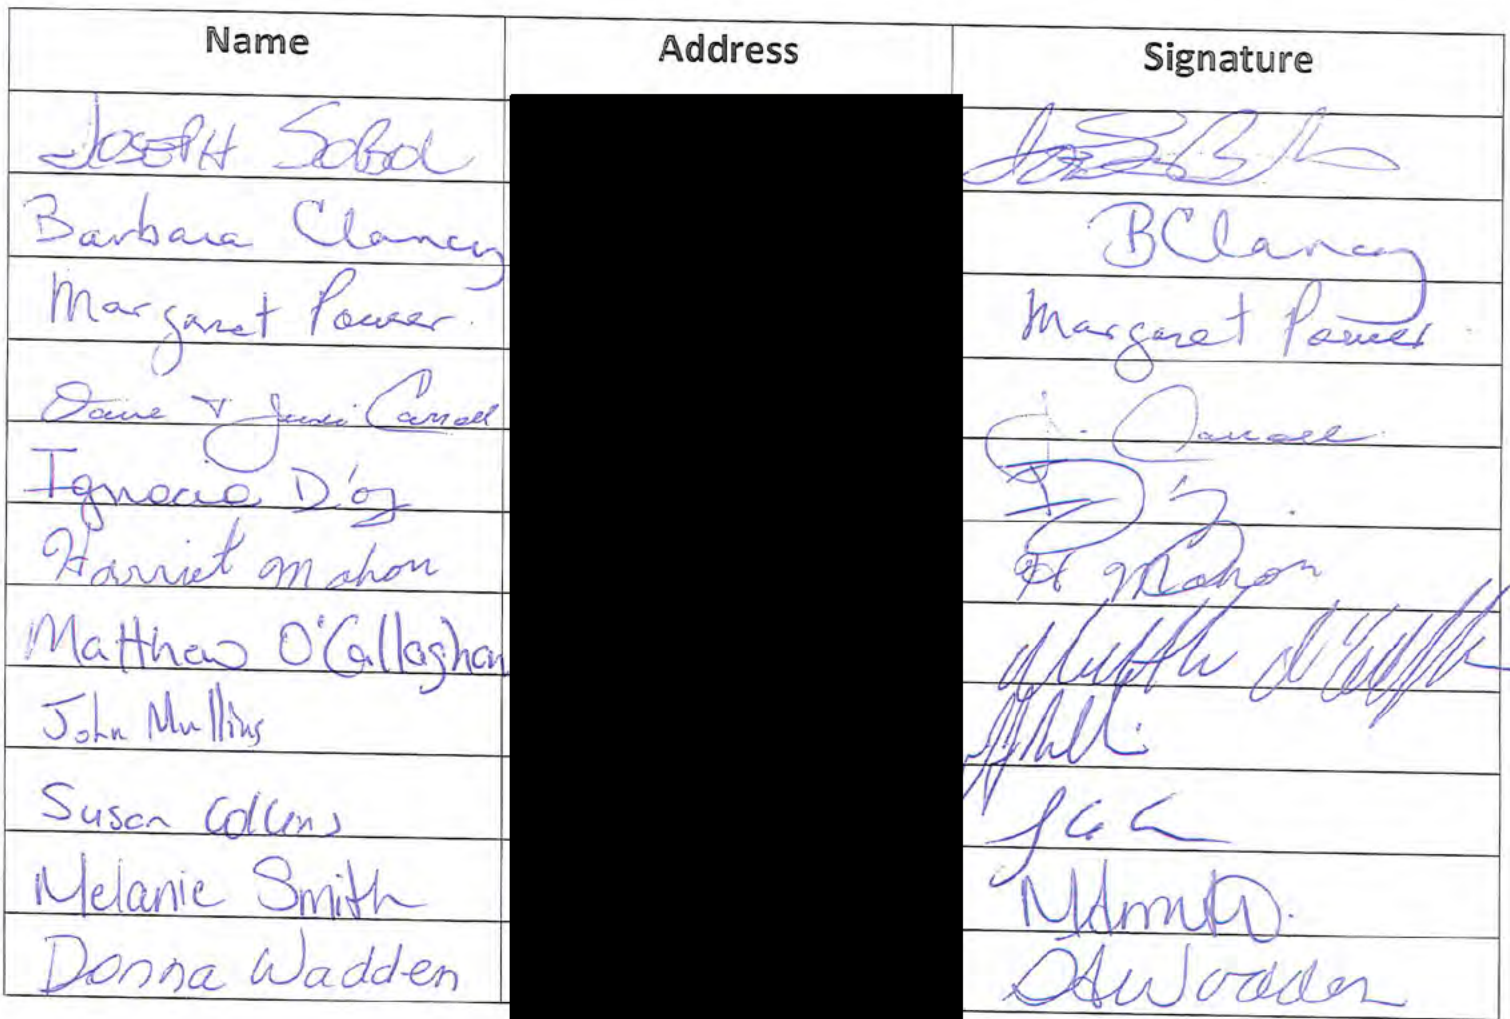 Name Address Signature
JOSEPH SOBOL
Barbara Clancy BClancy
Margaret Power. Margaret Power.
Dave + Carroll J. Carroll
Ignacio Díaz
Harriet Mahon H Mahon
Matthew O'Callaghan
John Mullins
Susan Collins
Melanie Smith MSmith.
Donna Wadden Wadden